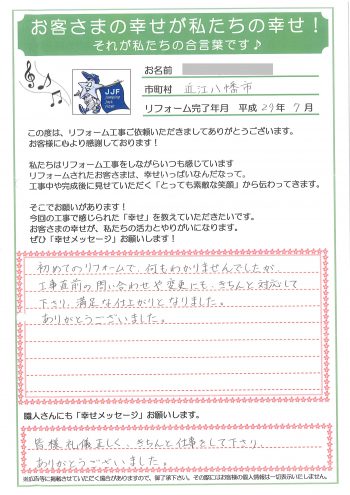 お客さまの幸せが私たちの幸せ！
それが私たちの合言葉です♪
JJF
お名前
市町村 近江八幡市
リフォーム完了年月 平成 29年 7月
この度は、リフォーム工事ご依頼いただきましてありがとうございます。
お客様に心より感謝しております！
私たちはリフォーム工事をしながらいつも感じています
リフォームされたお客さまは、幸せいっぱいなんだなって。
工事中や完成後に見せていただく「とっても素敵な笑顔」から伝わってきます。
そこでお願いがあります！
今回の工事で感じられた「幸せ」を教えていただきたいです。
お客さまの幸せが、私たちの活力とやりがいになります。
ぜひ「幸せメッセージ」お願いします！
初めてのリフォームで、何もわかりませんでしたが、
工事直前の問い合わせや変更にも、きちんと対応して
下さり、満足な仕上がりとなりました。
ありがとうございました。
職人さんにも「幸せメッセージ」お願いします。
皆様礼儀正しく、きちんと仕事をして下さり、
ありがとうございました。
※広告等に掲載させていただく場合がありますので、御了承下さい。その際にはお客様の個人情報は一切表示いたしません。